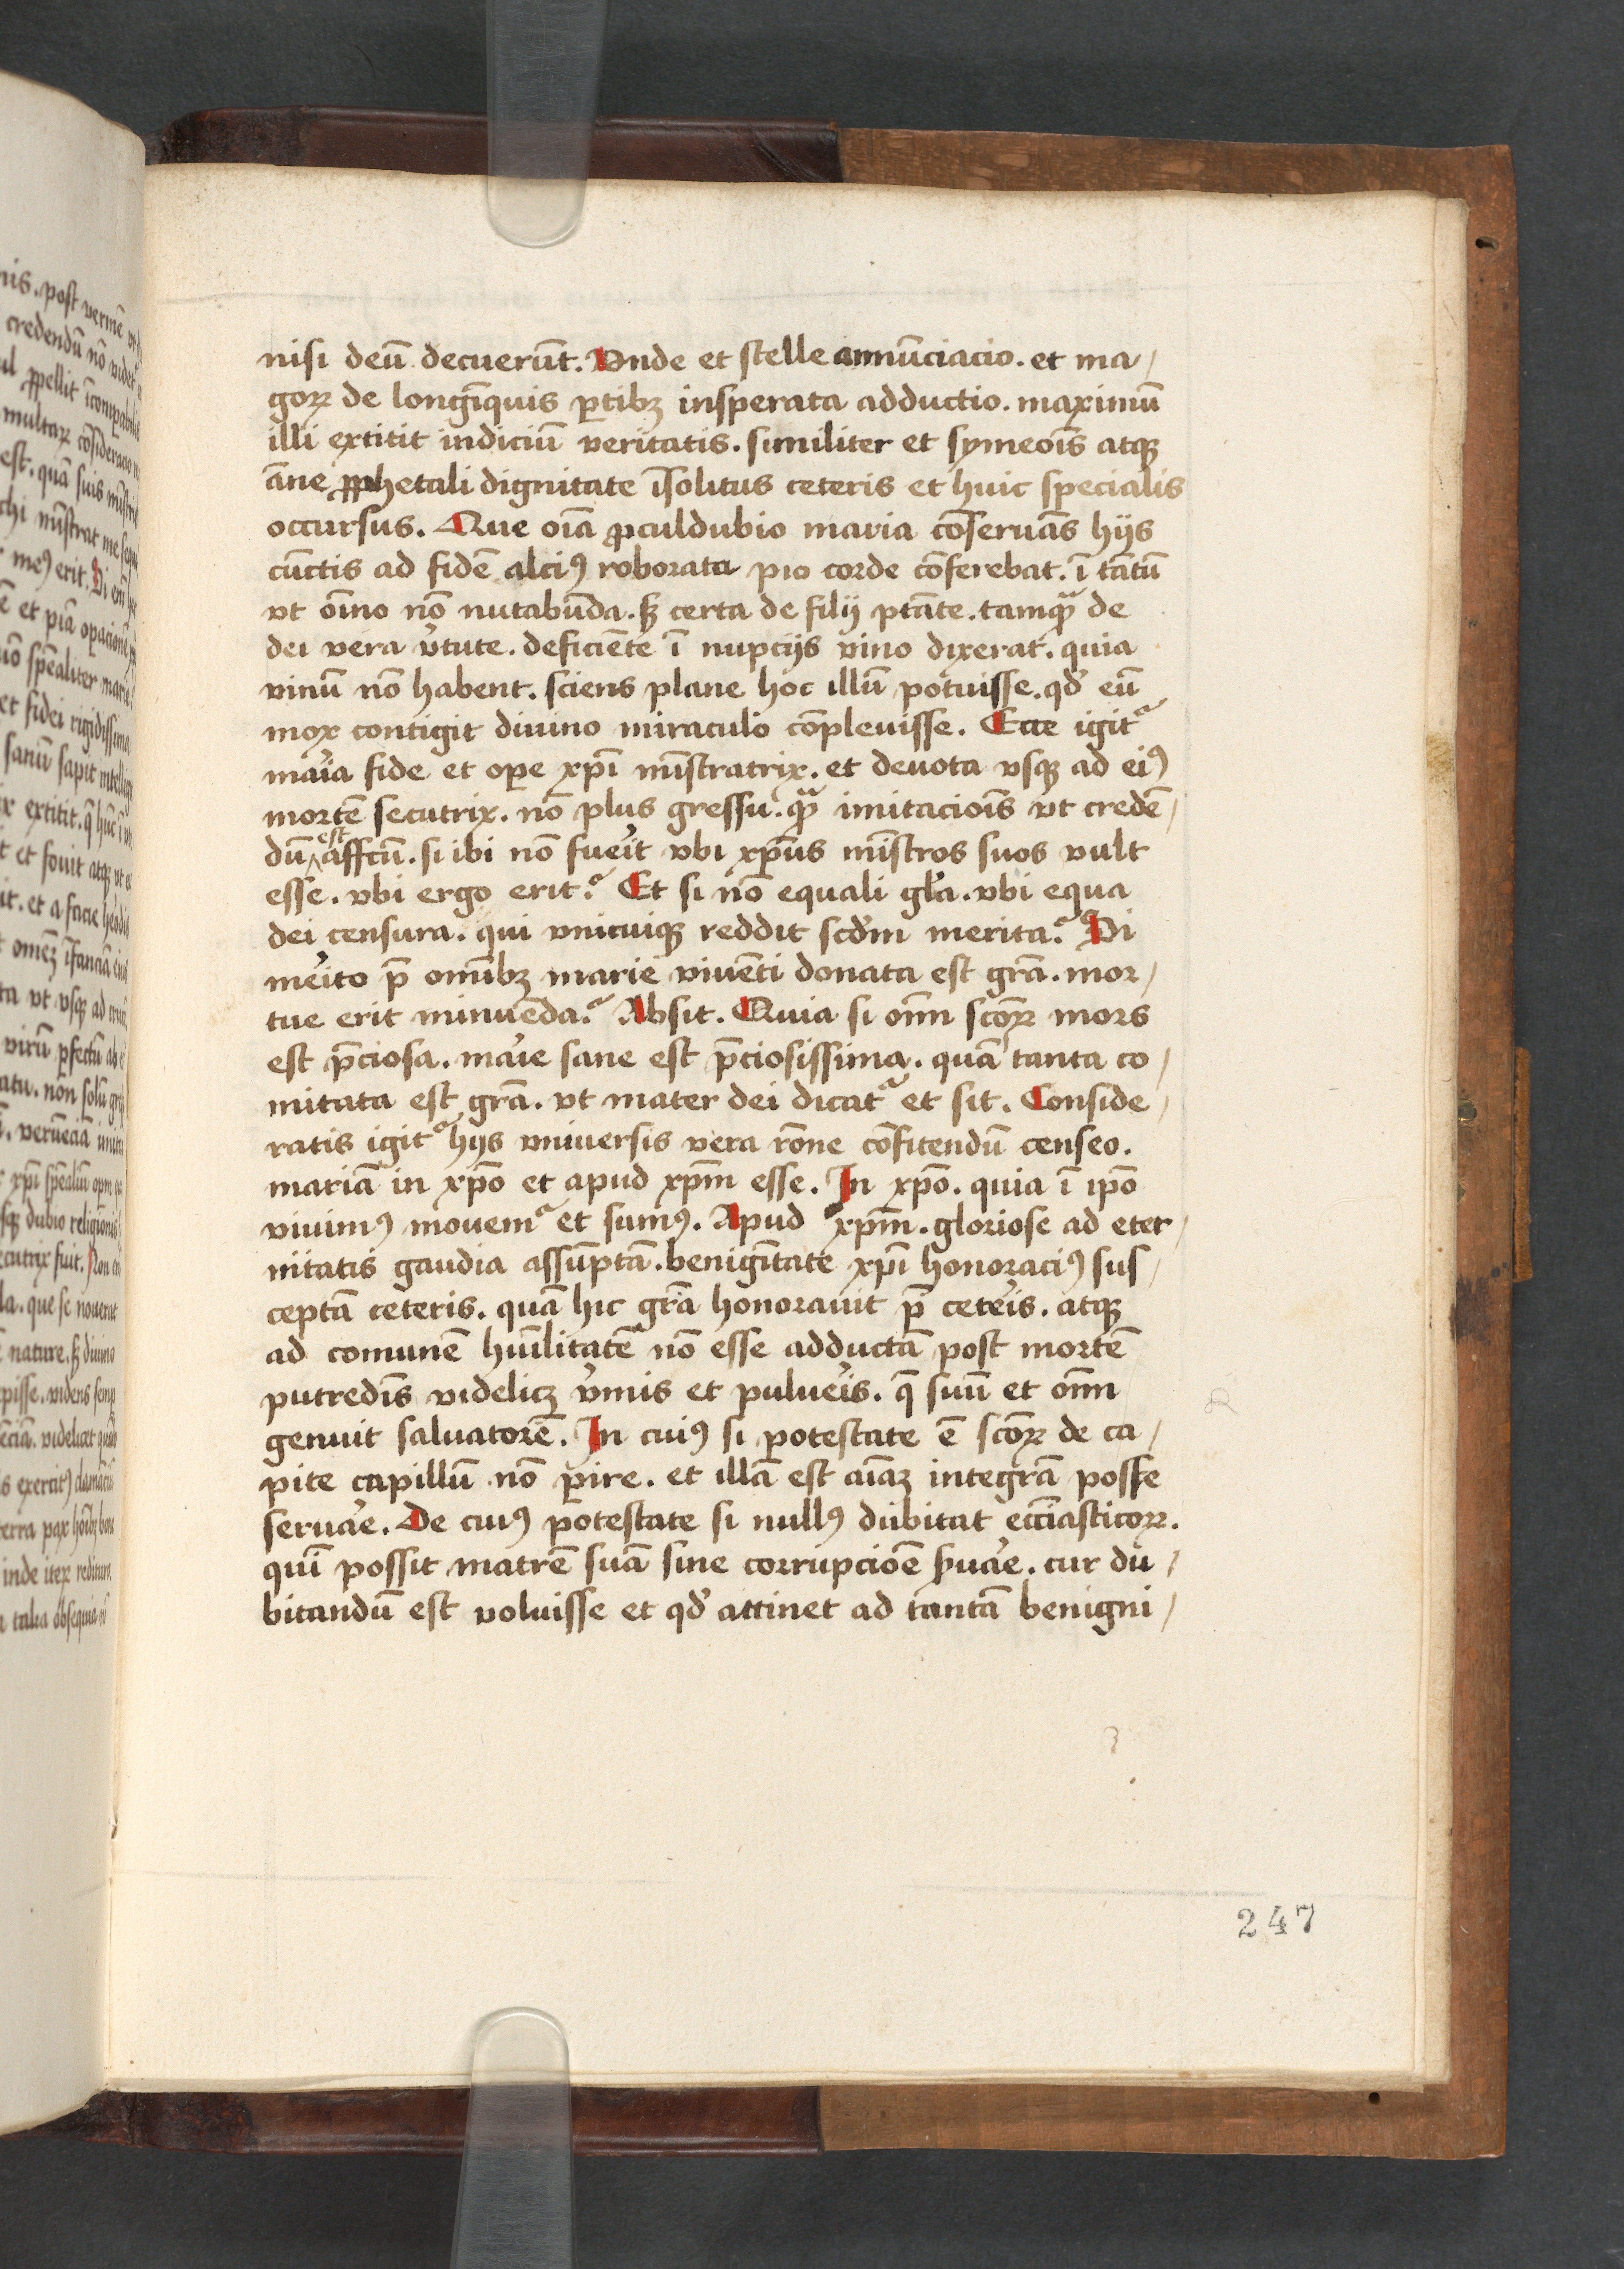 nisi deū decuerūt. Vnde et stelle annūciacio. et ma/
goꝝ de longīquis ꝑtibꝫ insperata adductio. maximū
illi extitit indiciū veritatis. similiter et symeoīs atqꝫ
āne ꝓphetali dignitate īsolitus ceteris et huic specialis
occursus. Que oīa ꝓculdubio maria cōseruās hijs
cūctis ad fidē alciꝰ roborata pio corde cōferebat. ī tātū
vt oīno nō nutabūda. sꝫ certa de filij ptāte. tamqᷓ de
dei vera v̓tute. deficiēte ī nupcijs vino dixerat. quia
vinū nō habent. sciens plane hoc illū potuisse. qd̓ eū
mox contigit diuino miraculo cōpleuisse. Ecce igit᷑
mar̓ia fide et oꝑe xp̄i mīstratrix. et deuota vsqꝫ ad eiꝰ
mortē secutrix. nō plus gressu. qᷓ imitacioīs vt credē/
dū est affcū. si ibi nō fuer̓it vbi xp̄us mīstros suos vult
esse. vbi ergo erit? Et si nō equali gl̓a. vbi equa
dei censura. qui vnicuiqꝫ reddit scd̓m merita? Si
mer̓ito p̄ omībꝫ marie viuēti donata est grā. mor/
tue erit minuēda? Absit. Quia si oīm scōꝝ mors
est p̄ciosa. mar̓ie sane est p̄ciosissima. quā tanta co/
mitata est grā. vt mater dei dicat᷑ et sit. Conside/
ratis igit᷑ hijs vniuersis vera rōne cōfitendū censeo.
mariā in xp̄o et apud xp̄m esse. In xp̄o. quia ī ip̄o
viuimꝰ mouem᷑ et sumꝰ. Apud xp̄m. gloriose ad eter/
nitatis gaudia assūptā. benignītate xp̄i honoraciꝰ sus/
ceptā ceteris. quā hic grā honorauit p̄ ceter̓is. atqꝫ
ad comunē huīlitatē nō esse adductā post mortē
putredīs videlicꝫ v̓mis et puluer̓is. q̄ suū et oīm
genuit saluatorē. In cuiꝰ si potestate ē scōꝝ de ca/
pite capillū nō ꝑire. et illā est aīaꝫ integrā posse
seruar̓e. De cuiꝰ potestate si nullꝰ dubitat eccīasticoꝝ.
quī possit matrē suā sine corrupcioē ẜuar̓e. cur du/
bitandū est voluisse et qd̓ attinet ad tantā benigni/
247